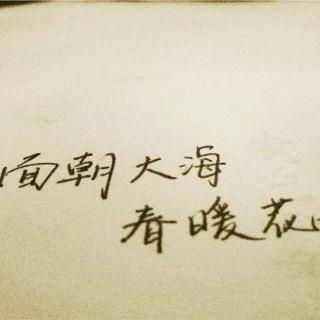 面朝大海
春暖花